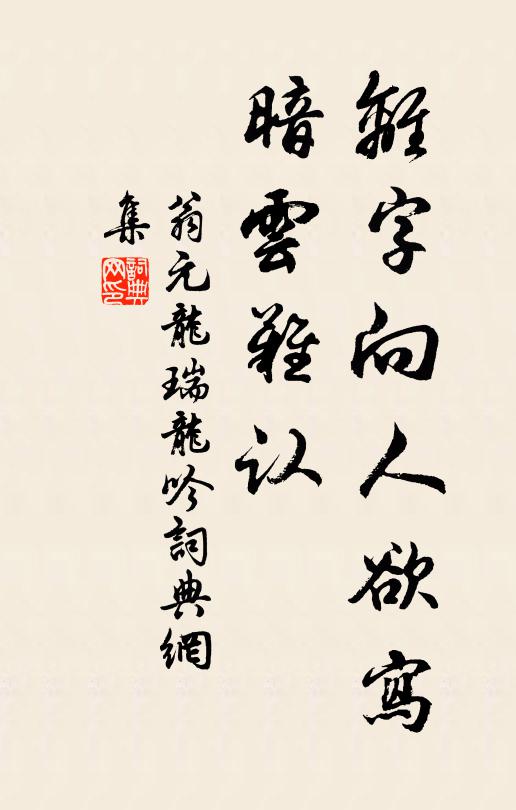 離字向人欲寫
暗雲難认
翁元龍瑞龍吟詞典網
集
詞典
网印